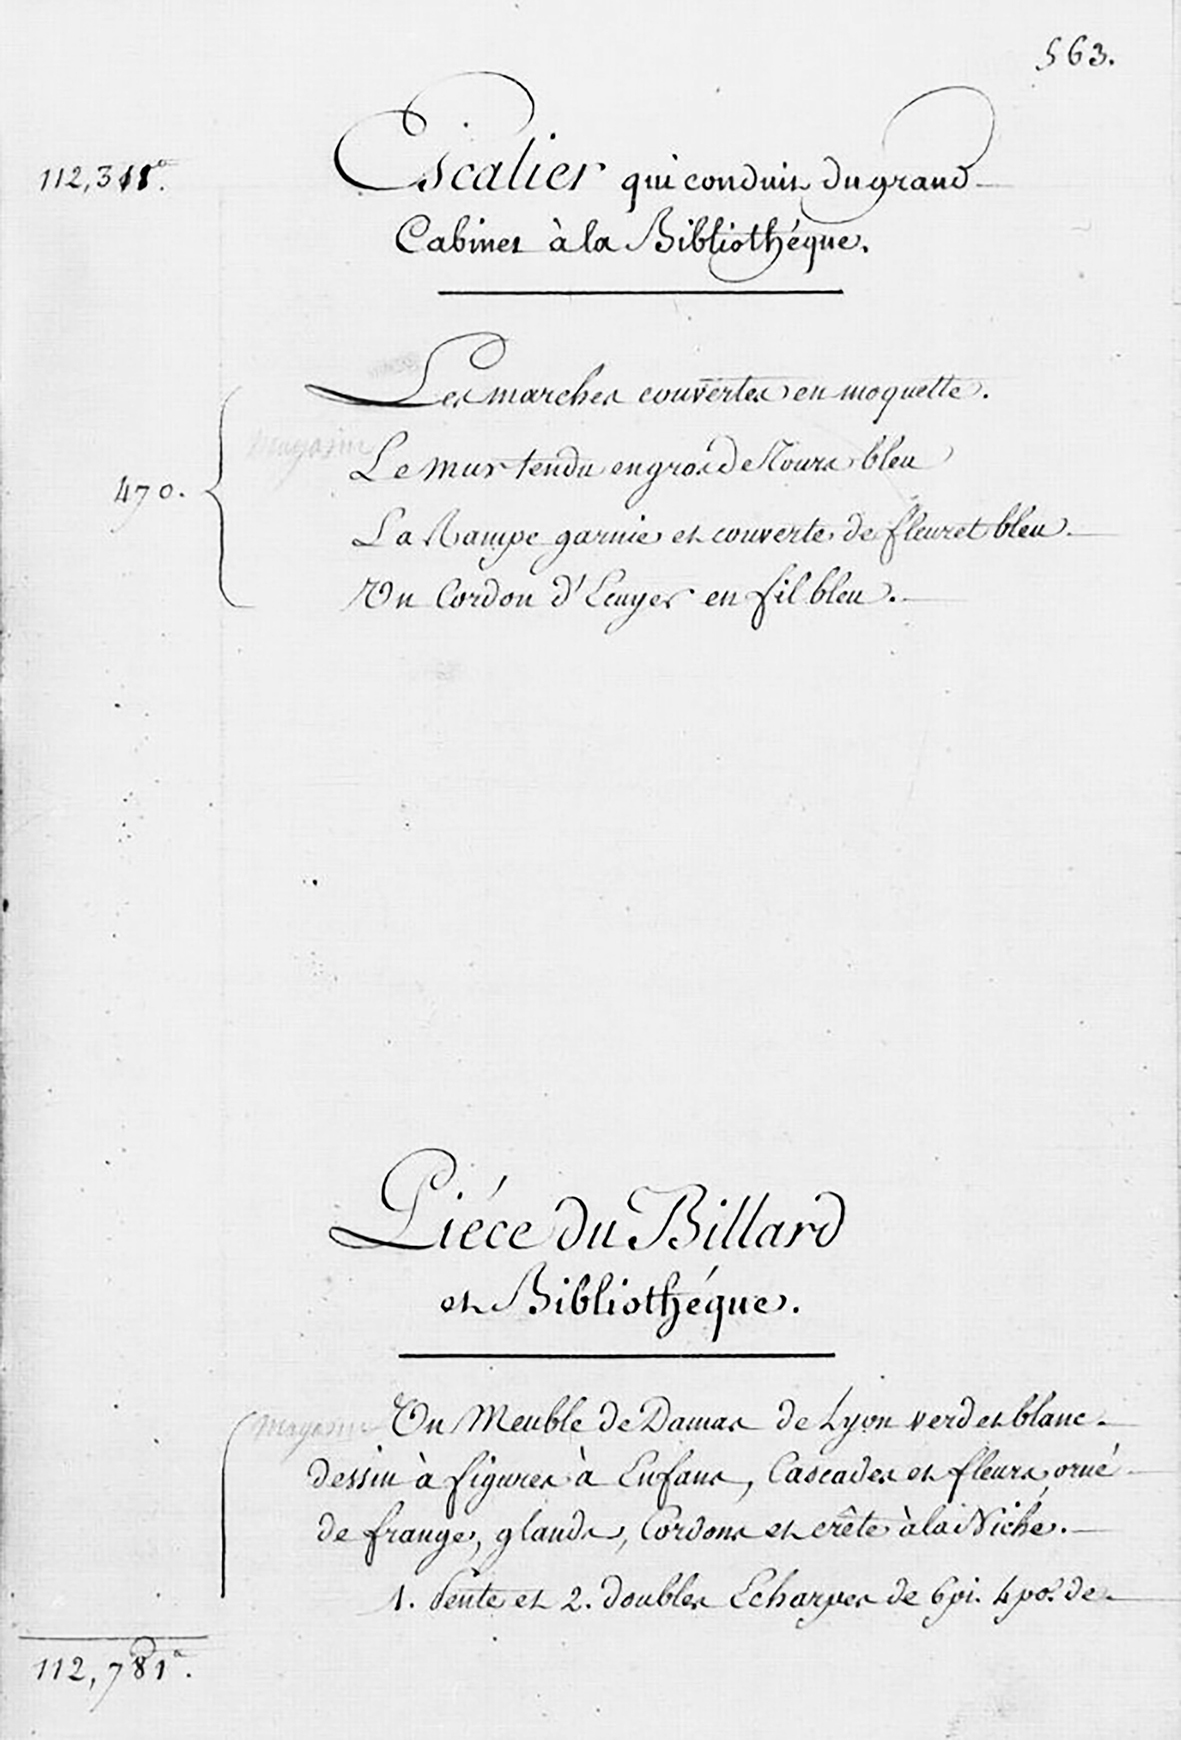 563.
112,311.
Escalier qui conduit du grand
Cabinet à la Bibliothéque.
Les marches couvertes en moquette.
Magasin
Le mur tendu en gros de Tours bleu
470.
La Rampe garnie et couverte de fleuret bleu
Un Cordon d'Ecuyer en fil bleu.
Piéce du Billard
et Bibliothéque.
Magasin Un Meuble de Damas de Lyon verd et blanc
dessin à figures à Enfans, Cascades et fleurs, orné
de frange, glands, Cordons et crête à la
1. Pente et 2. doubles Echarpes de 6 pi. 4 po. de
112,781.